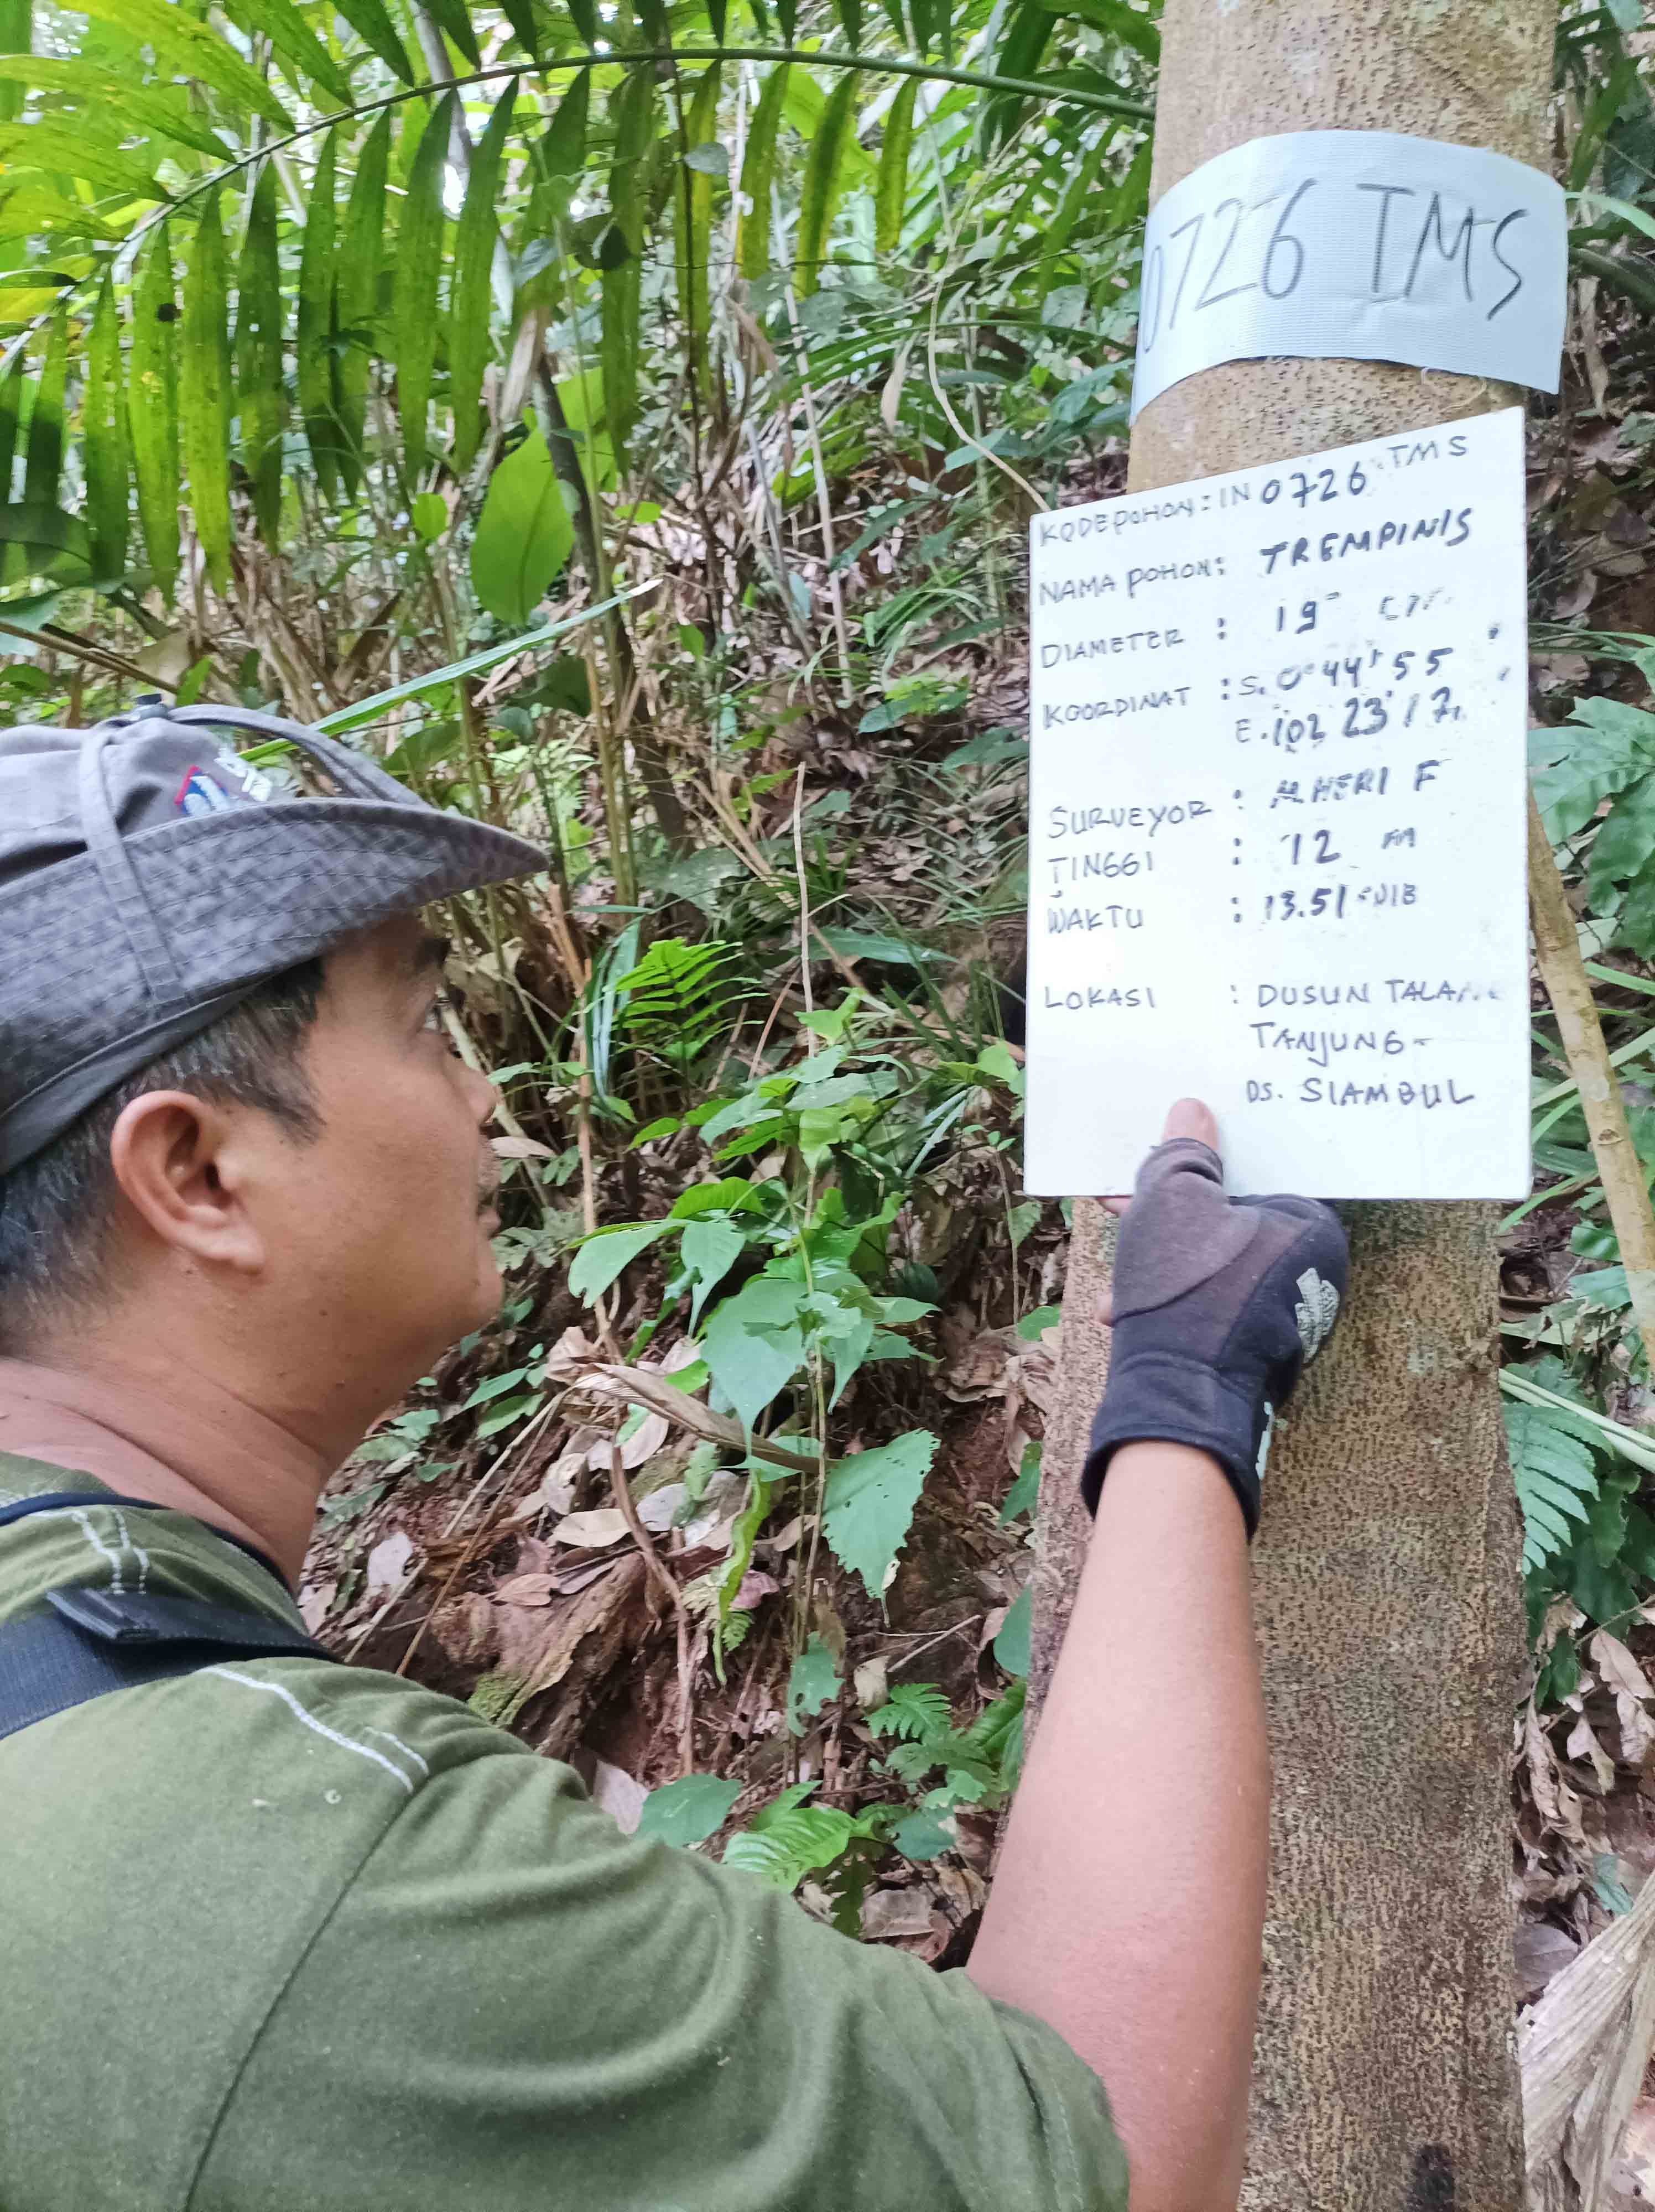 0726 TMS
KODE POHON : IN 0726 TMS
NAMA POHON : TREMPINIS
DIAMETER : 19 cm
KOORDINAT : S. 0° 44' 55
E. 102 23' 17,
SURVEYOR : M HERI F
TINGGI : 12 M
WAKTU : 13.51 WIB
LOKASI : DUSUN TALANG
TANJUNG -
DS. SIAMBUL